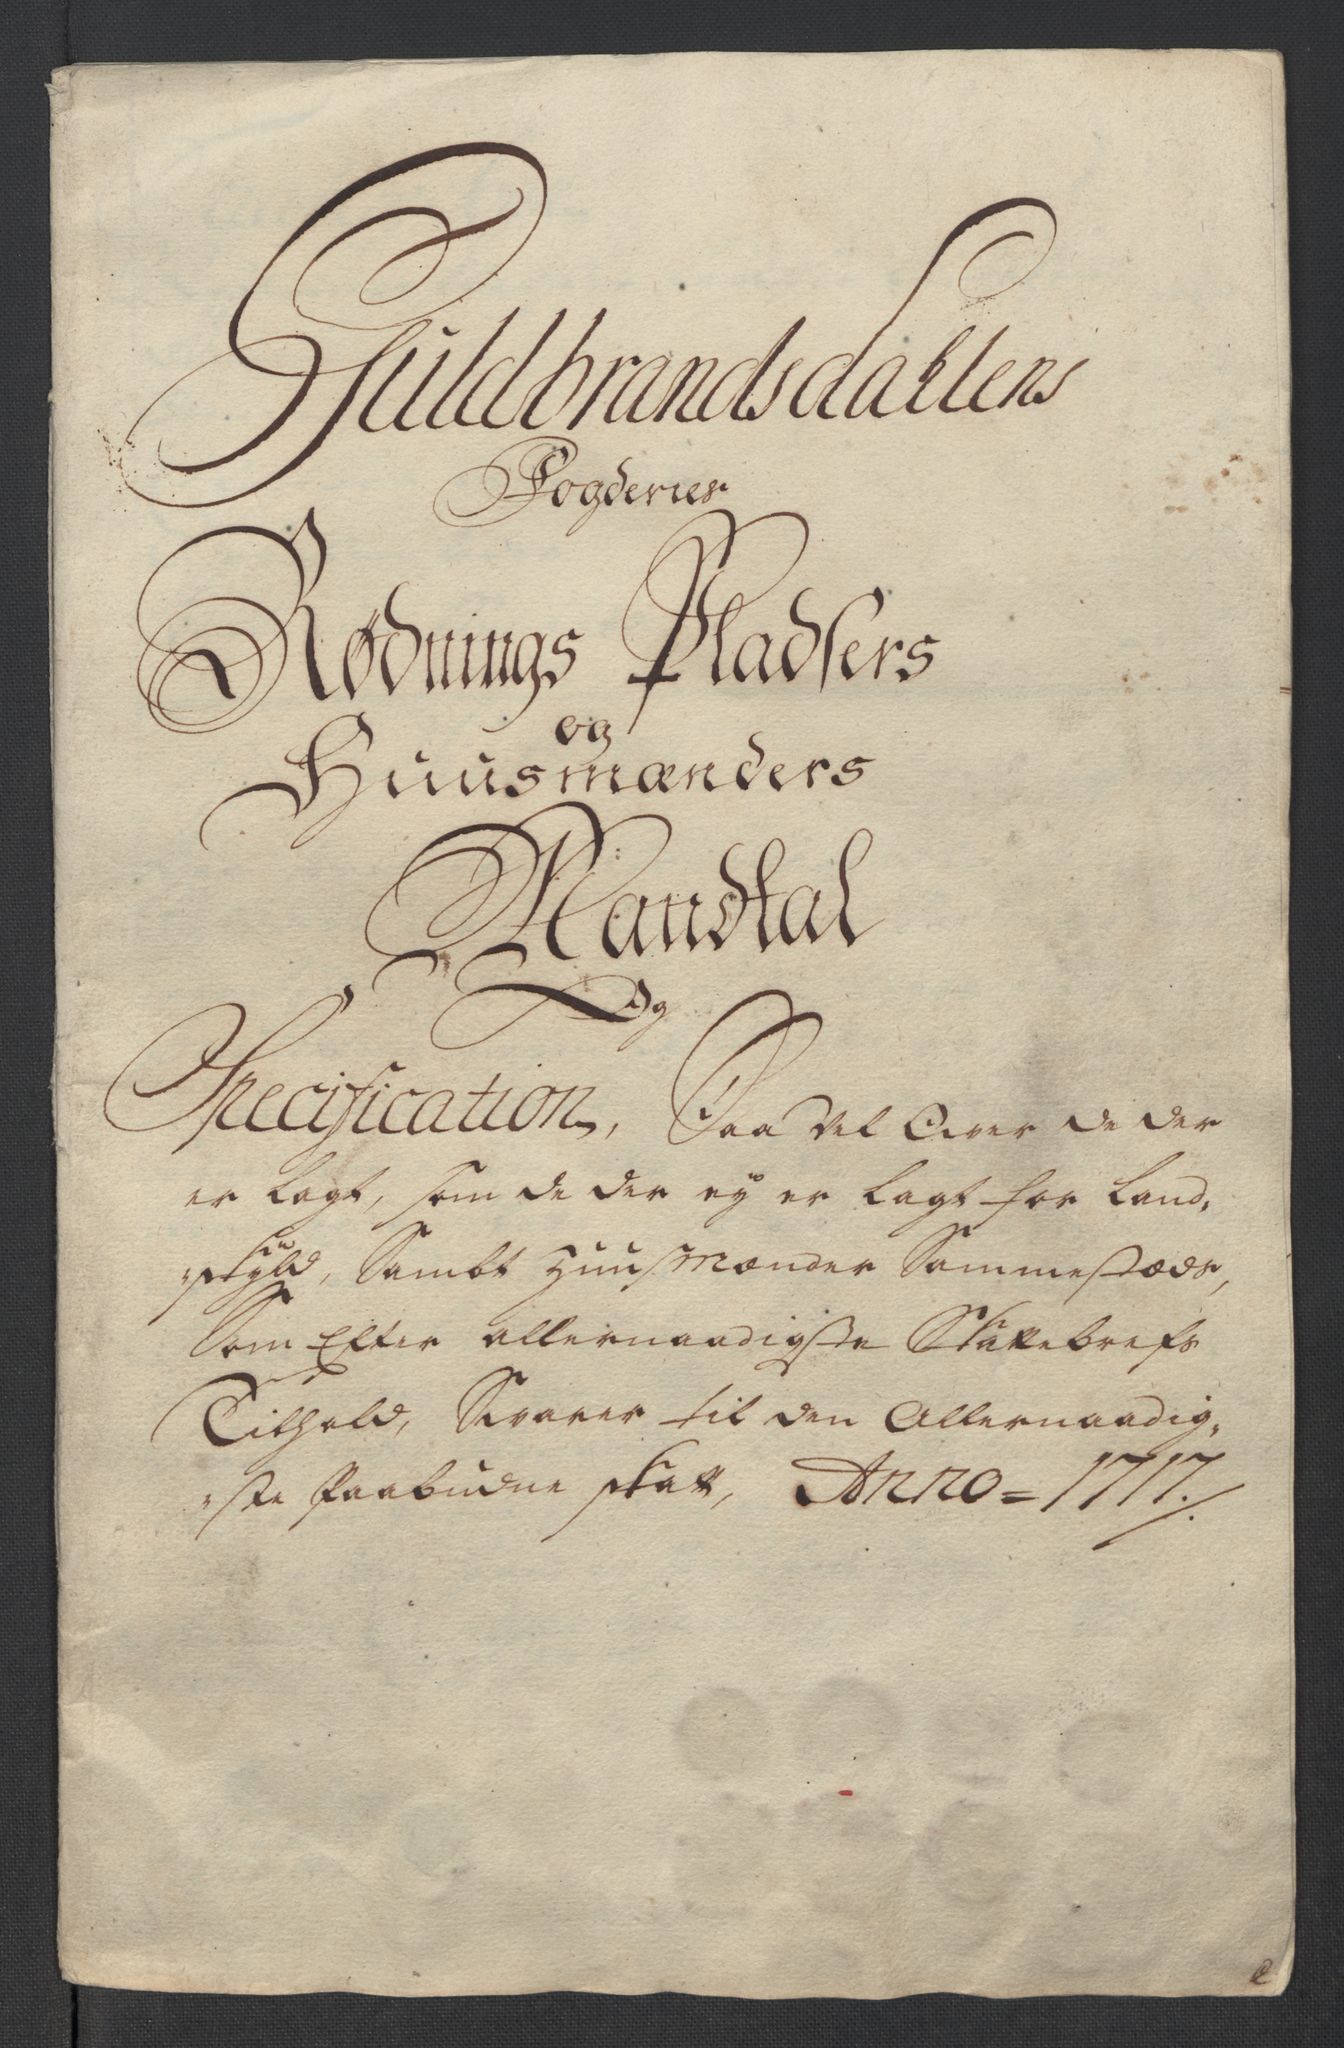 Guldbrandsdahlens
Fogderies
Rødnings Pladsers
og
Huusmænders
Mandtal
Og
Specification, Saa vel Over de der
er lagt, som de der ey er lagt for Land,
skyld, Sambt Huusmænder Sammestæds,
Som Efter allernaadigste Skattebrefs
Tilhold, Svarer til den Allernaadig,
ste Paabudne skatt, Anno = 1717.